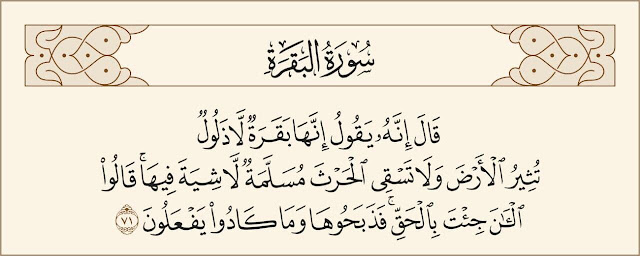 سُورَةُ البَقَرَةِ
قَالَ إِنَّهُۥ يَقُولُ إِنَّهَا بَقَرَةٌ لَّا ذَلُولٌ
تُثِيرُ ٱلْأَرْضَ وَلَا تَسْقِى ٱلْحَرْثَ مُسَلَّمَةٌ لَّا شِيَةَ فِيهَا ۚ قَالُوا۟
ٱلْـَٰٔنَ جِئْتَ بِٱلْحَقِّ ۚ فَذَبَحُوهَا وَمَا كَادُوا۟ يَفْعَلُونَ ٧١